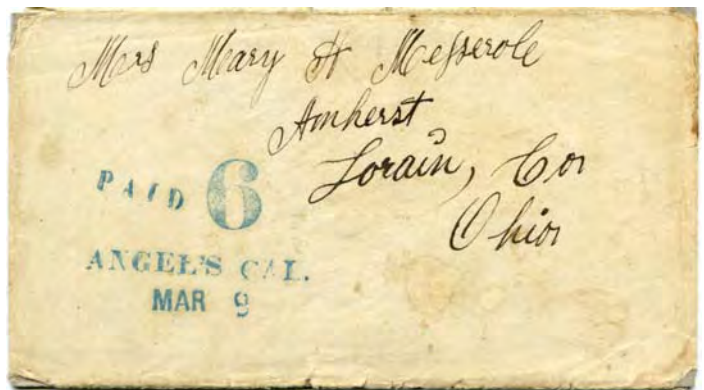 Mrs Mary H Messerole
Amherst
Lorain, Co
Ohio
PAID 6
ANGEL'S CAL.
MAR 9